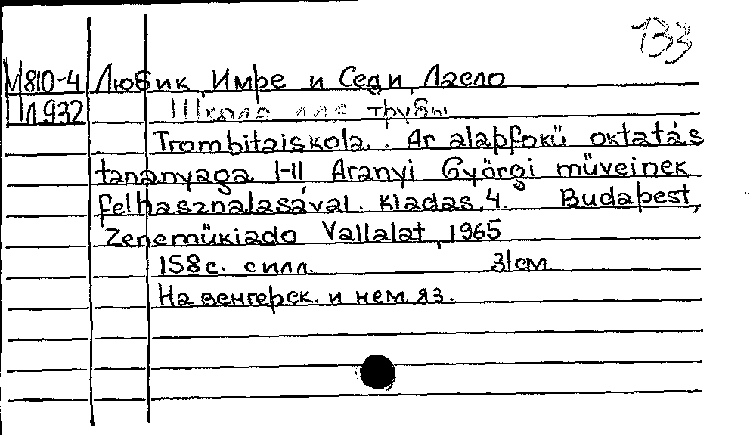 133
М810-4 Любик, Имре и Седи, Ласло
Ш932 Школа для трубы
Trombitaiskola. Ar alapfokú oktatás
tananyaga I-II Aranyi Györgi müveinek
felhasznalasával. Kladas, 4. Budapest,
Zenemükiado Vallalat, 1965
158 с. силл. 31 см
На венгерск. и нем яз.